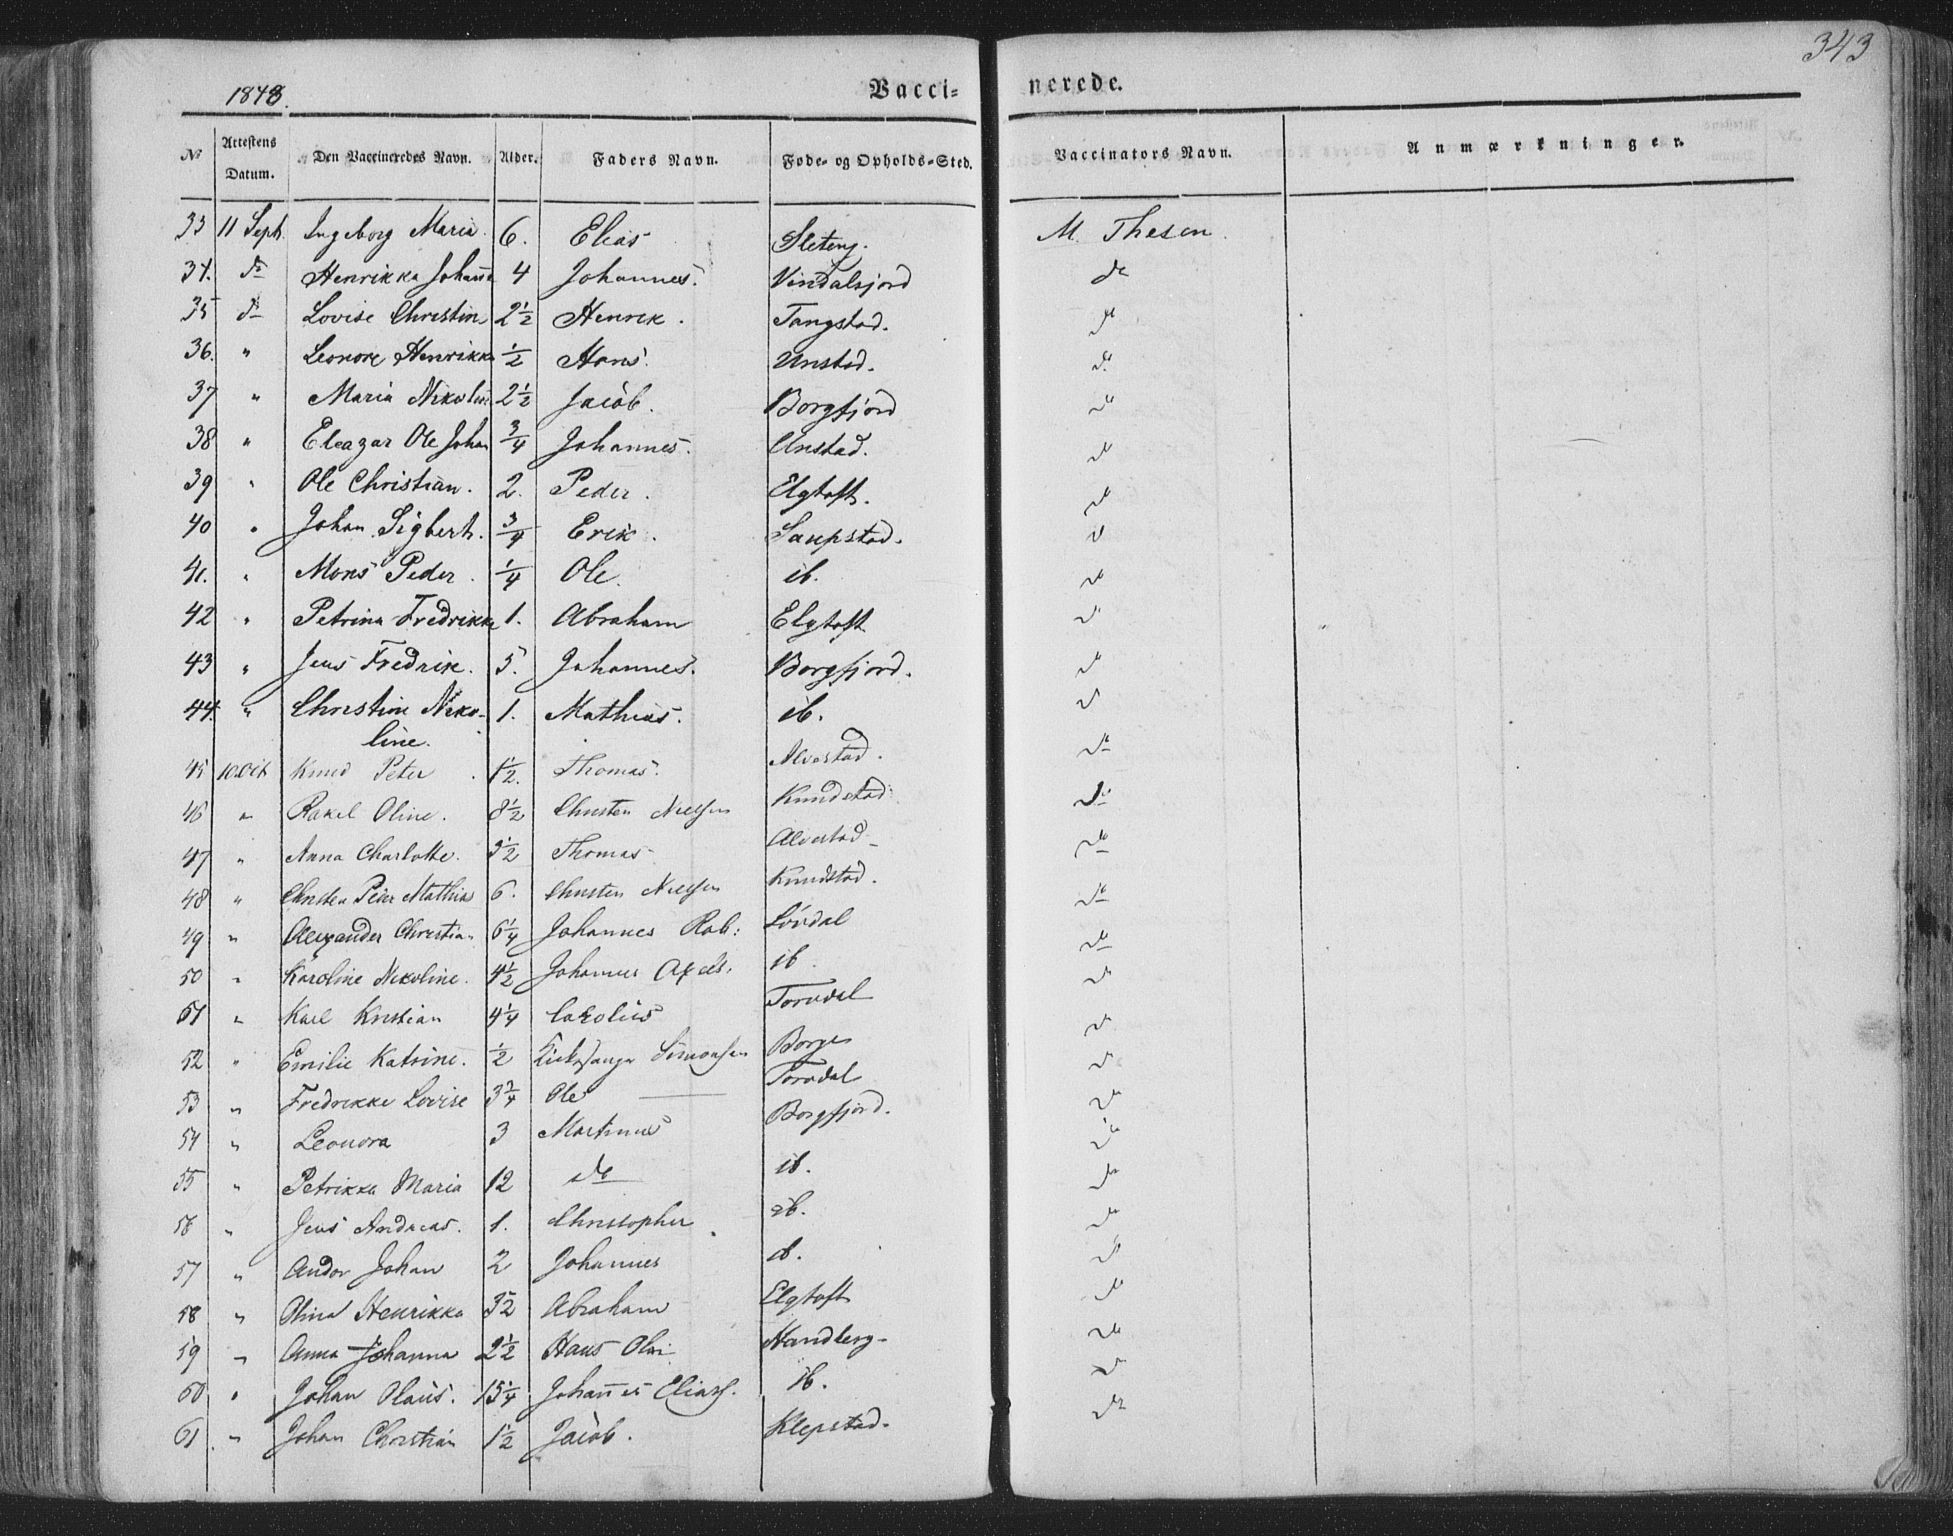 343
1848.
Vacci= nerede.
No Attestens Datum. Den Vaccineredes Navn. Alder. Faders Navn. Føde- og Opholds-Sted. Vaccinators Navn. Anmærkninger.
33 11 Sept. Ingeborg Maria. 6. Elias Sleteng. M. Thesen
34. do Henrikka Johanna 4 Johannes. Vindalsjord do
35 do Lovise Christin 2½ Henrik. Tangstad. do
36. " Leonore Henrikka ½ Hans. Unstad. do
37 " Maria Nikolin 2½ Jacob. Borgfjord do
38 " Eleazar Ole Johan ¾ Johannes. Unstad. do
39 " Ole Christian. 2. Peder. Elgtoft. do
40 " Johan Sigbert. ¾ Erik. Saupstad. do
41. " Mons Peder. ¼ Ole. ib. do
42 " Petrina Fredrikke 1. Abraham Elgtoft do
43 " Jens Fredrik. 5. Johannes. Borgfjord. do
44. " Christine Niko- 1. Mathias. ib. do
line.
45 10 Oct Knud Peter. 1½. Thomas. Alvestad. do
46 " Rakel Oline. 8½ Christen Nielsen Kundstad do
47 " Anna Charlotte. 3½ Thomas Alvestad do
48 " Christen Peter Mathias 6. Christen Nielsen Kundstad. do
49 " Alexander Christian 6¼ Johannes Rob: Lövdal do
50 " Karoline Nikoline. 4½ Johannes Axels. ib. do
51 " Karl Kristian 4¼ Carolius Torvdal do
52 " Emilie Katrine. ½ Kirkesanger Simonsen Borge do
53 " Fredrikke Lovise 3¾ Ole Torvdal do
54 " Leonora 3 Martinus Borgfjord. do
55 " Petrikka Maria 12 do ib. do
56 " Jens Andreas. 1. Christopher ib. do
57 " Andor Johan 2 Johannes ib. do
58 " Olina Henrikka 3½ Abraham Elgtoft do
59 " Anna Johanna 2½ Hans Olai Handberg- do
60 " Johan Olaus. 15¼ Johannes Eliass. ib. do
61. " Johan Christian 1½ Jacob. Klepstad. do